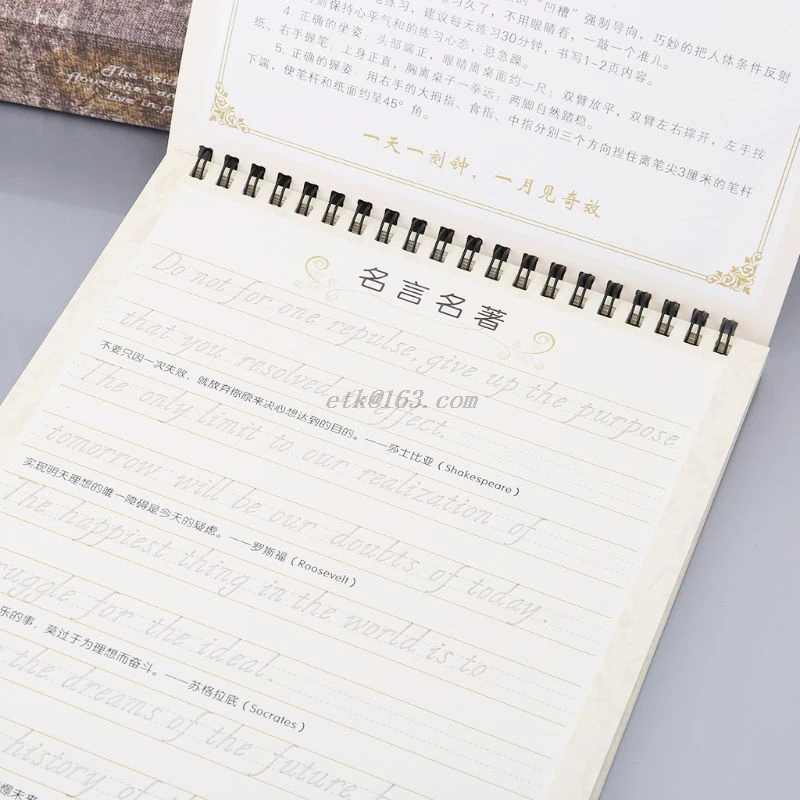 的"凹槽"强制导向，巧妙的把人体条件反射
练习，练习久了，不用眼睛看，一敲一个准儿。
时刻保持心平气和的练习心态，忌急躁。建议每天练习30分钟，书写1-2页内容。
4. 正确的坐姿：头部端正，眼睛离桌面约一尺；双臂放平，双臂左右撑开，左手按
纸、右手握笔；上身正直，胸离桌子一拳远；两脚自然踏稳。
5. 正确的握姿：用右手的大拇指、食指、中指分别三个方向捏住离笔尖3厘米的笔杆
下端，使笔杆和纸面约呈45°角。
一天一刻钟，一月见奇效
名言名著
Do not for one repulse, give up the purpose
that you resolved effect.
不要只因一次失败，就放弃你原来决心想达到的目的。——莎士比亚（Shakespeare）
The only limit to our realization of
tomorrow will be our doubts of today.
实现明天理想的唯一障碍是今天的疑虑。——罗斯福（Roosevelt）
The happiest thing in the world is to
ruggle for the ideal.
乐的事，莫过于为理想而奋斗。——苏格拉底（Socrates）
the dreams of the future
history of
憬未来
etk@163.com